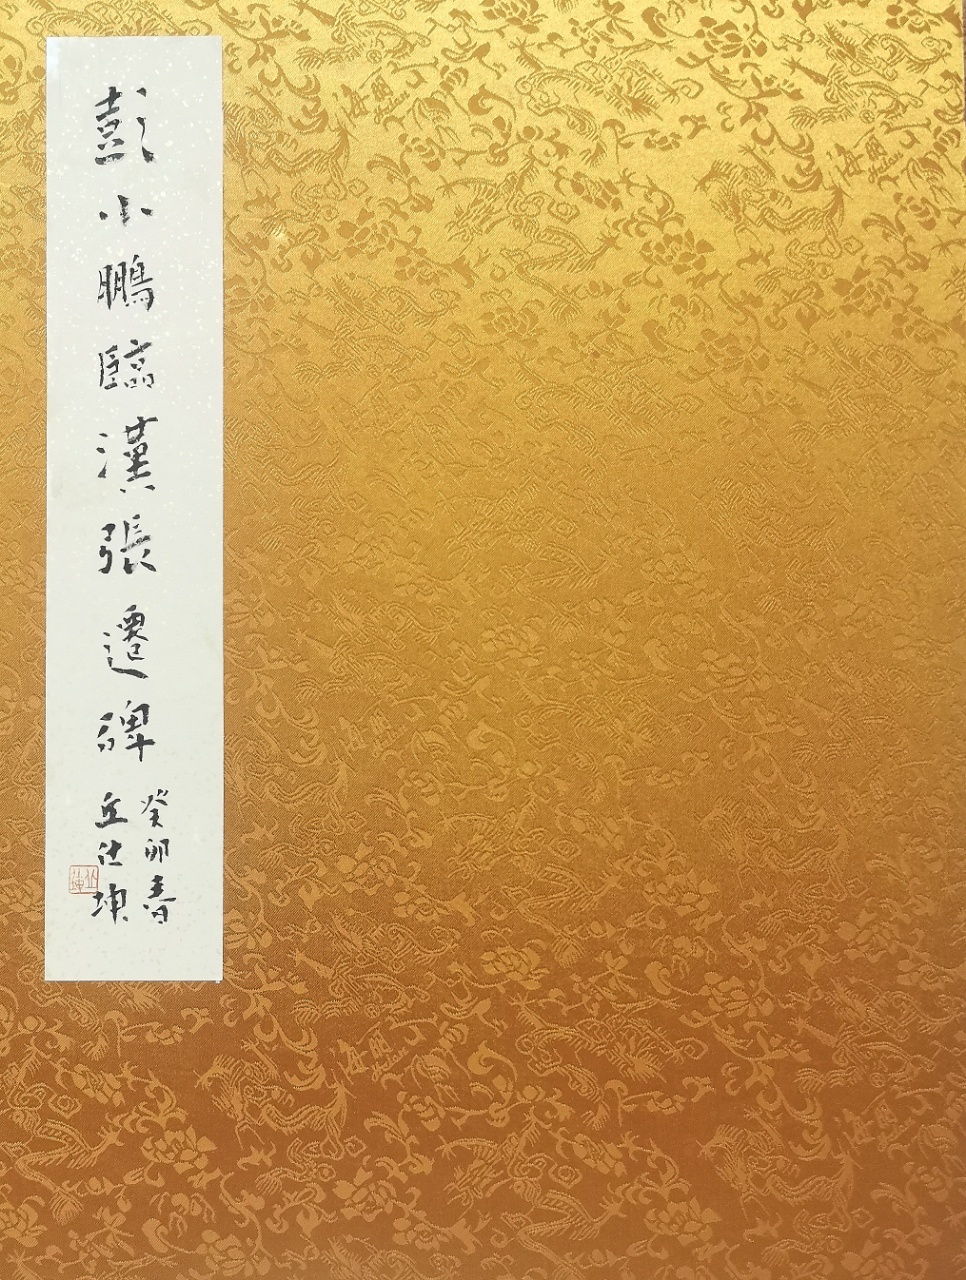 彭小鵬臨漢張遷碑
癸卯春
丘仕坤